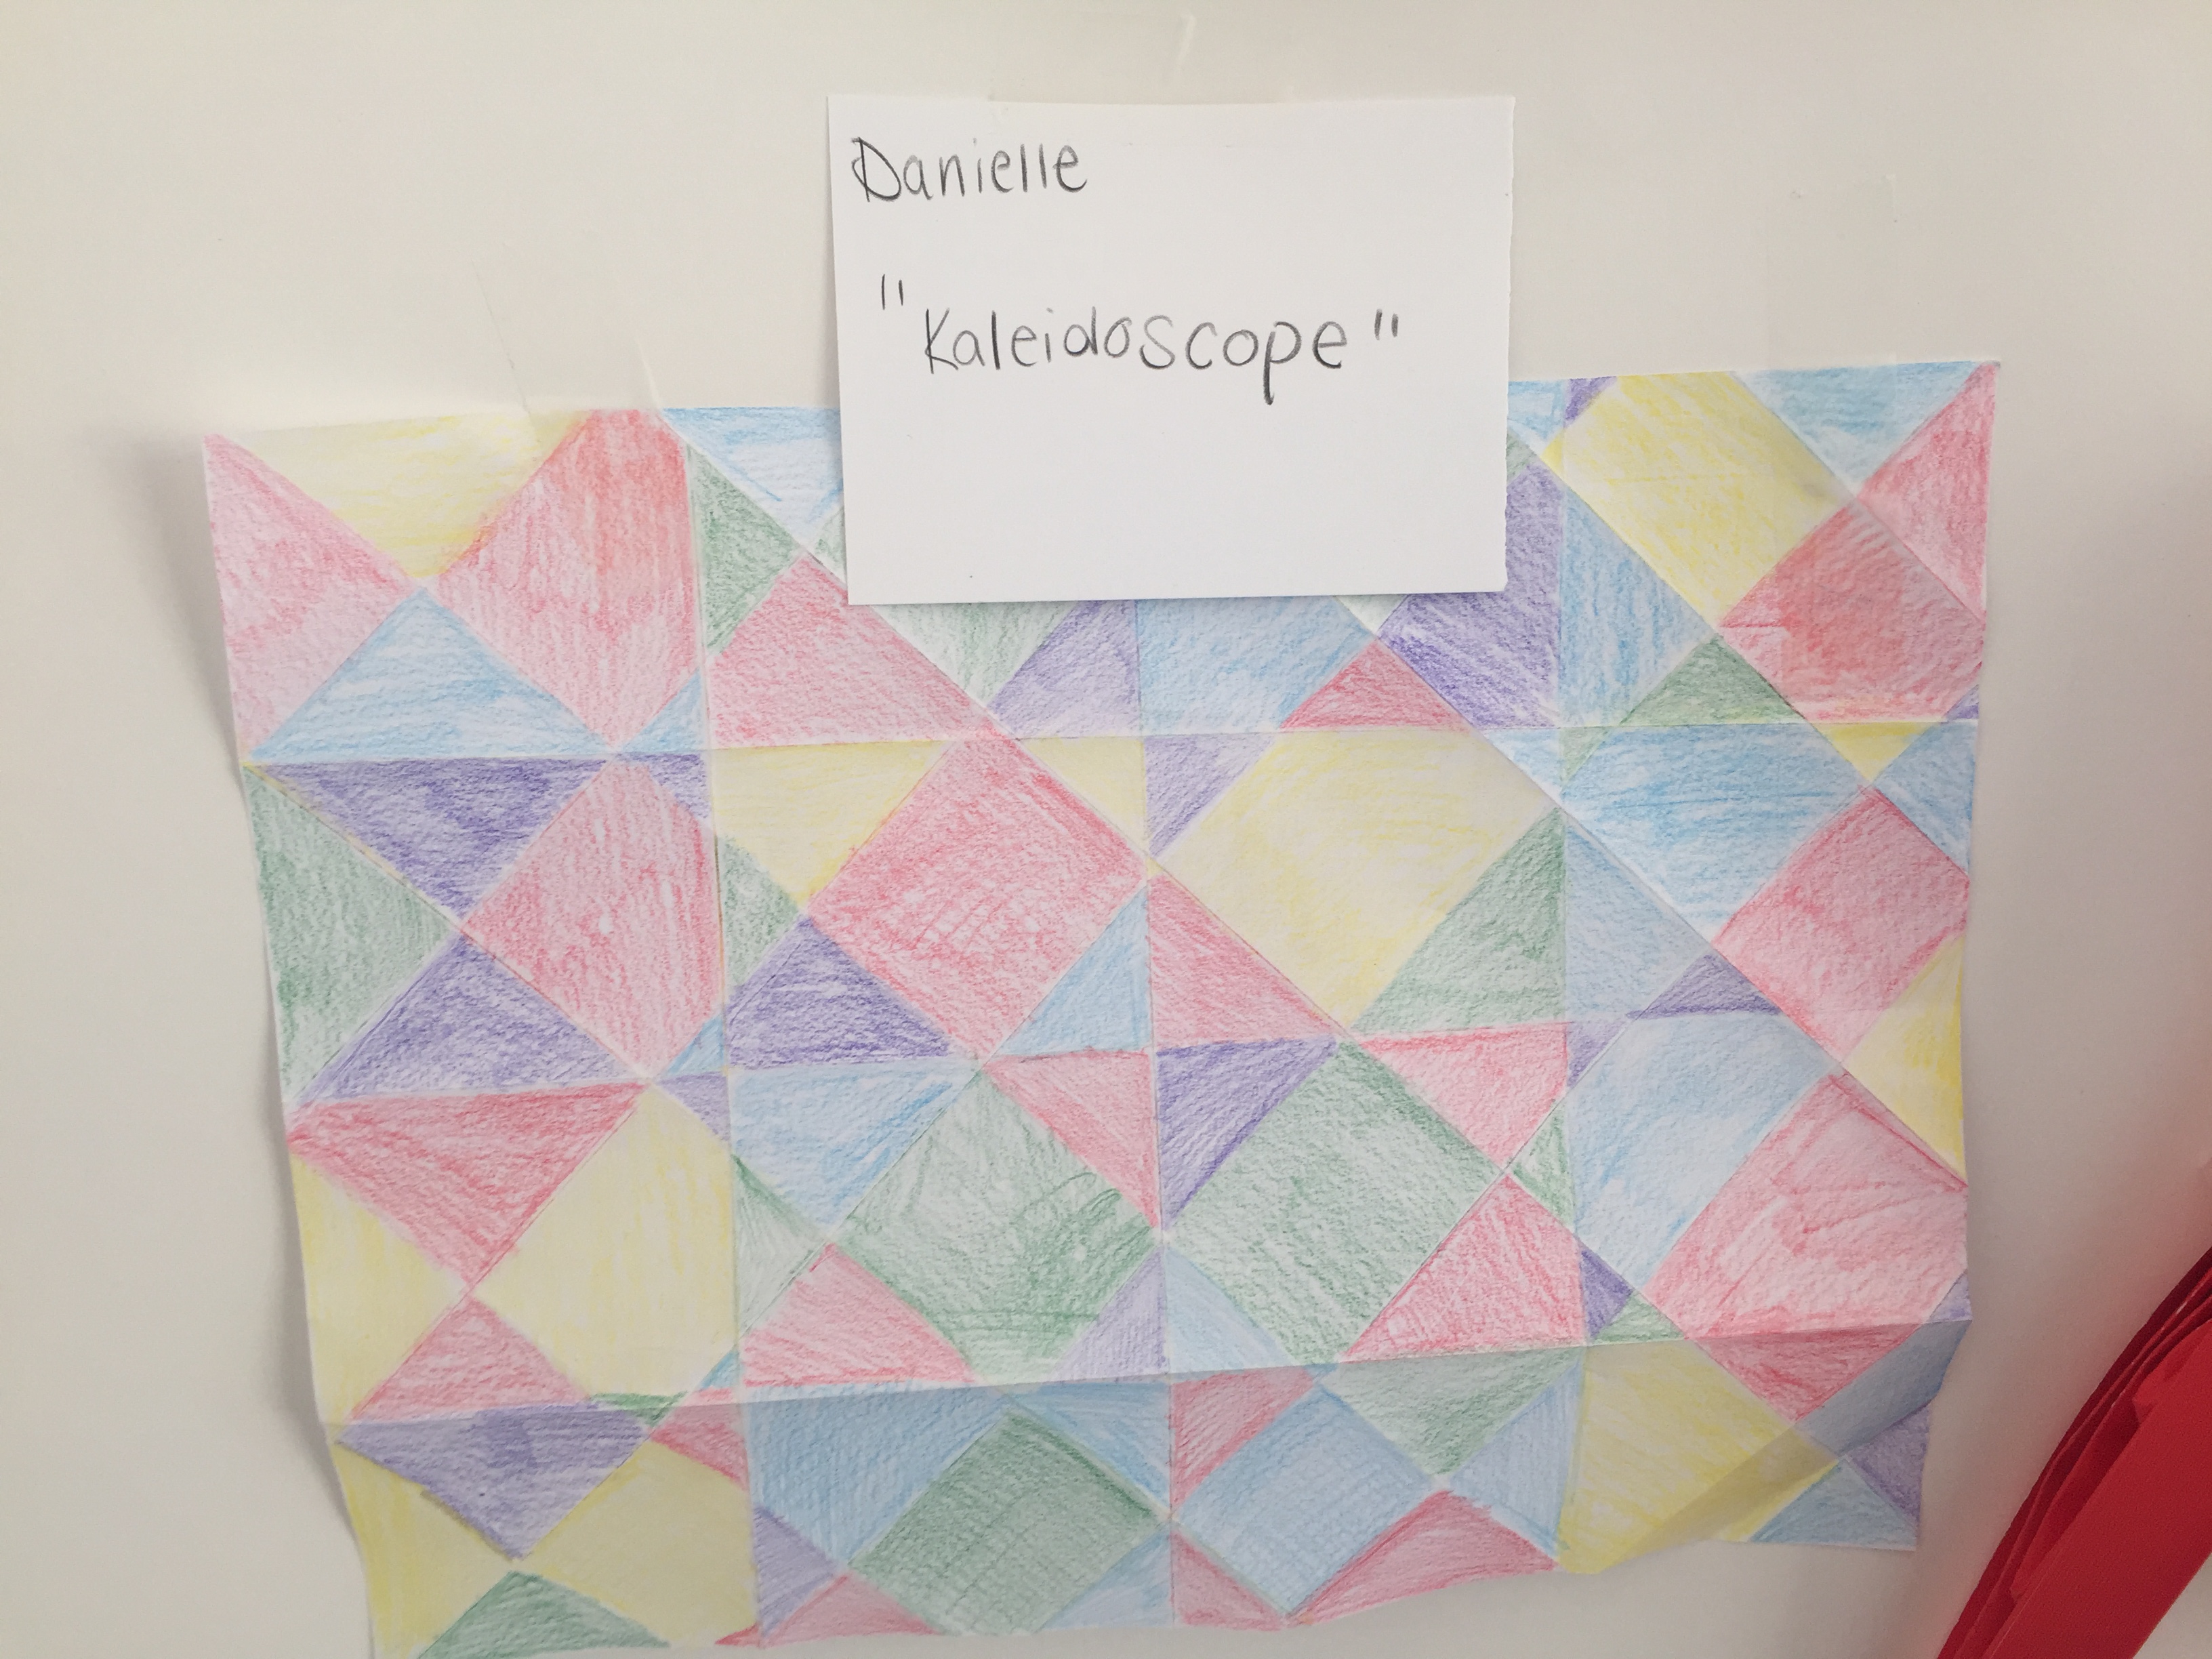 Danielle
"Kaleidoscope"